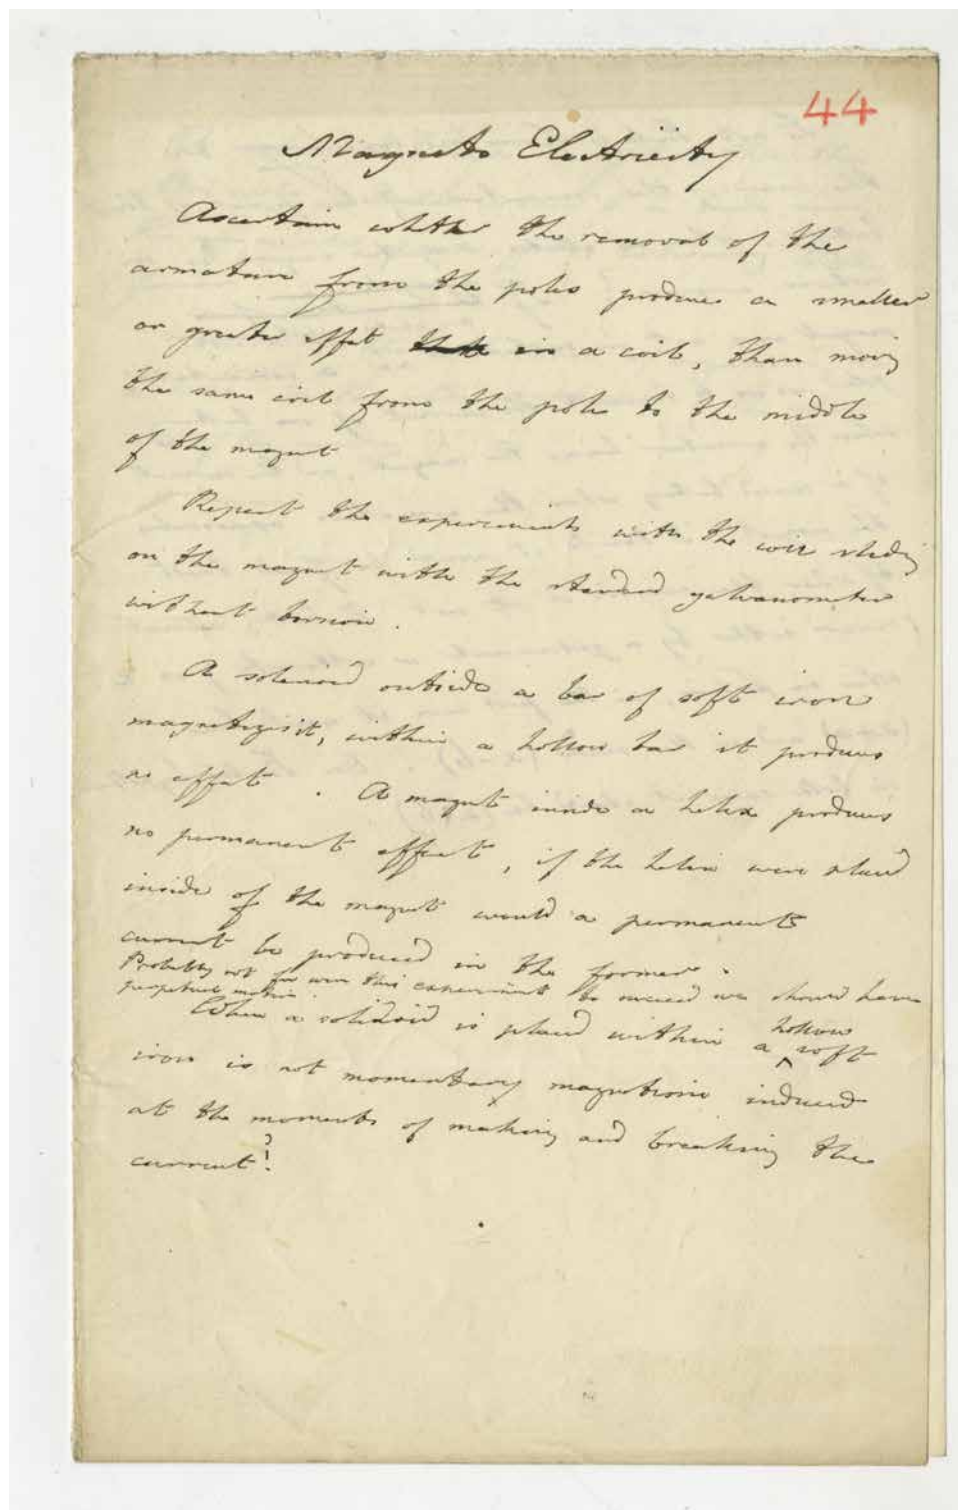 44
Magneto Electricity
Ascertain whether the removal of the
armature from the poles produces a smaller
or greater effect in a coil, than moving
the same coil from the pole to the middle
of the magnet
Repeat the experiments with the coil sliding
on the magnet with the standard galvanometer
without torsion.
A solenoid outside a bar of soft iron
magnetizes it, within a hollow bar it produces
no effect. A magnet inside a helix produces
no permanent effect, if the helix were placed
inside of the magnet would a permanent
current be produced in the former.
Probably not for were this experiment to succeed we should have
perpetual motion.
When a is placed within a hollow soft
iron is not momentary magnetism induced
at the moments of making and breaking the
current?